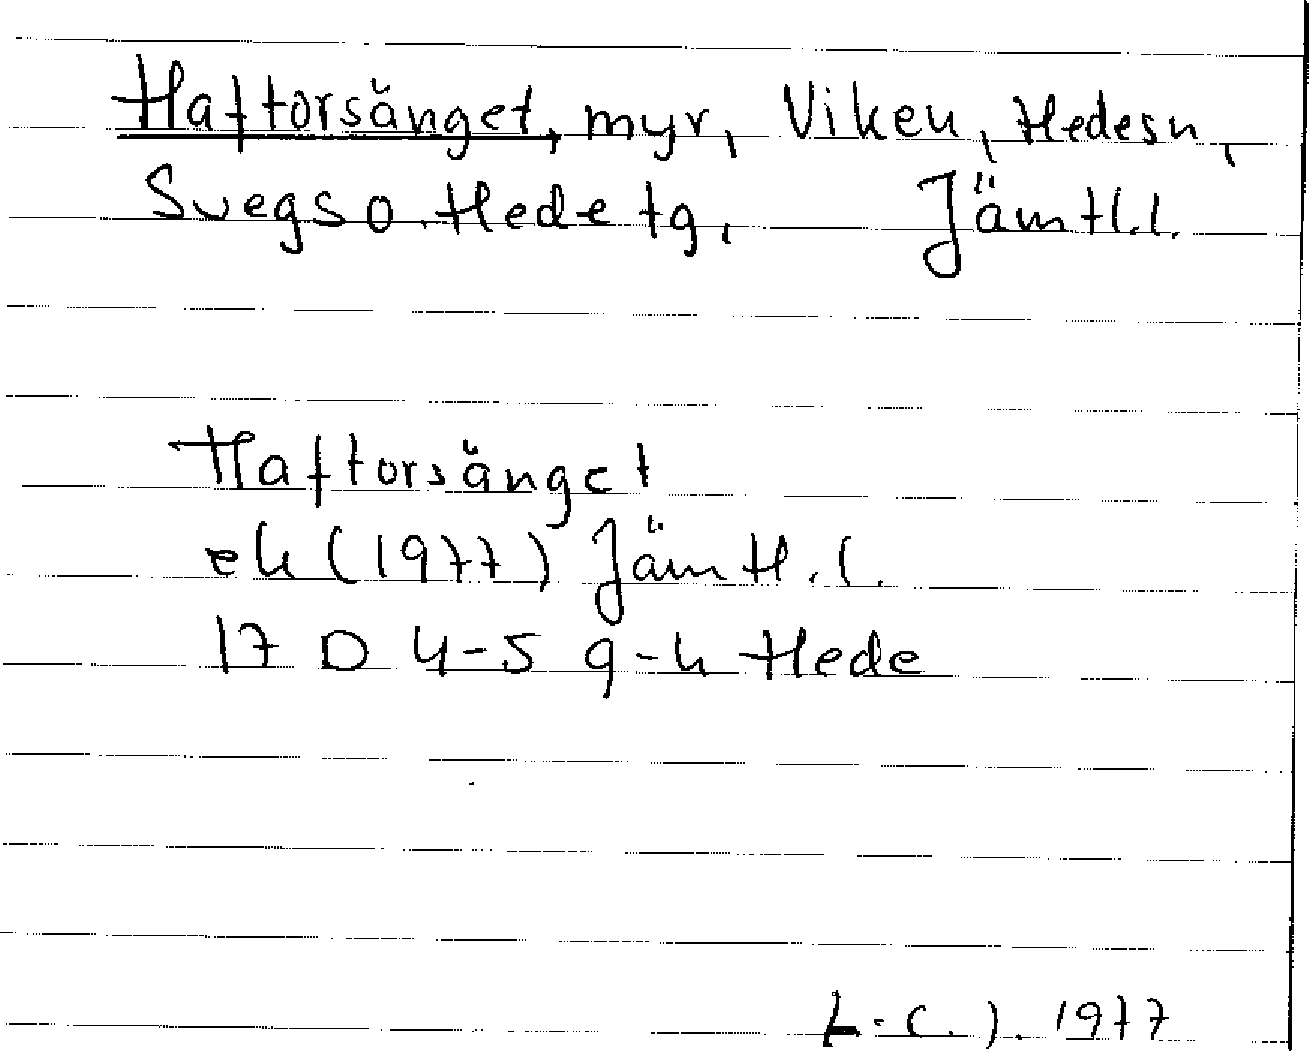 Haftorsänget, myr, Viken, Hedesn,
Svegs o. Hede tg, Jämtl.l.
Haftorsänget
ek (1977) Jämtl.l.
17 D 4-5 g-h Hede
L.-C. J. 1977